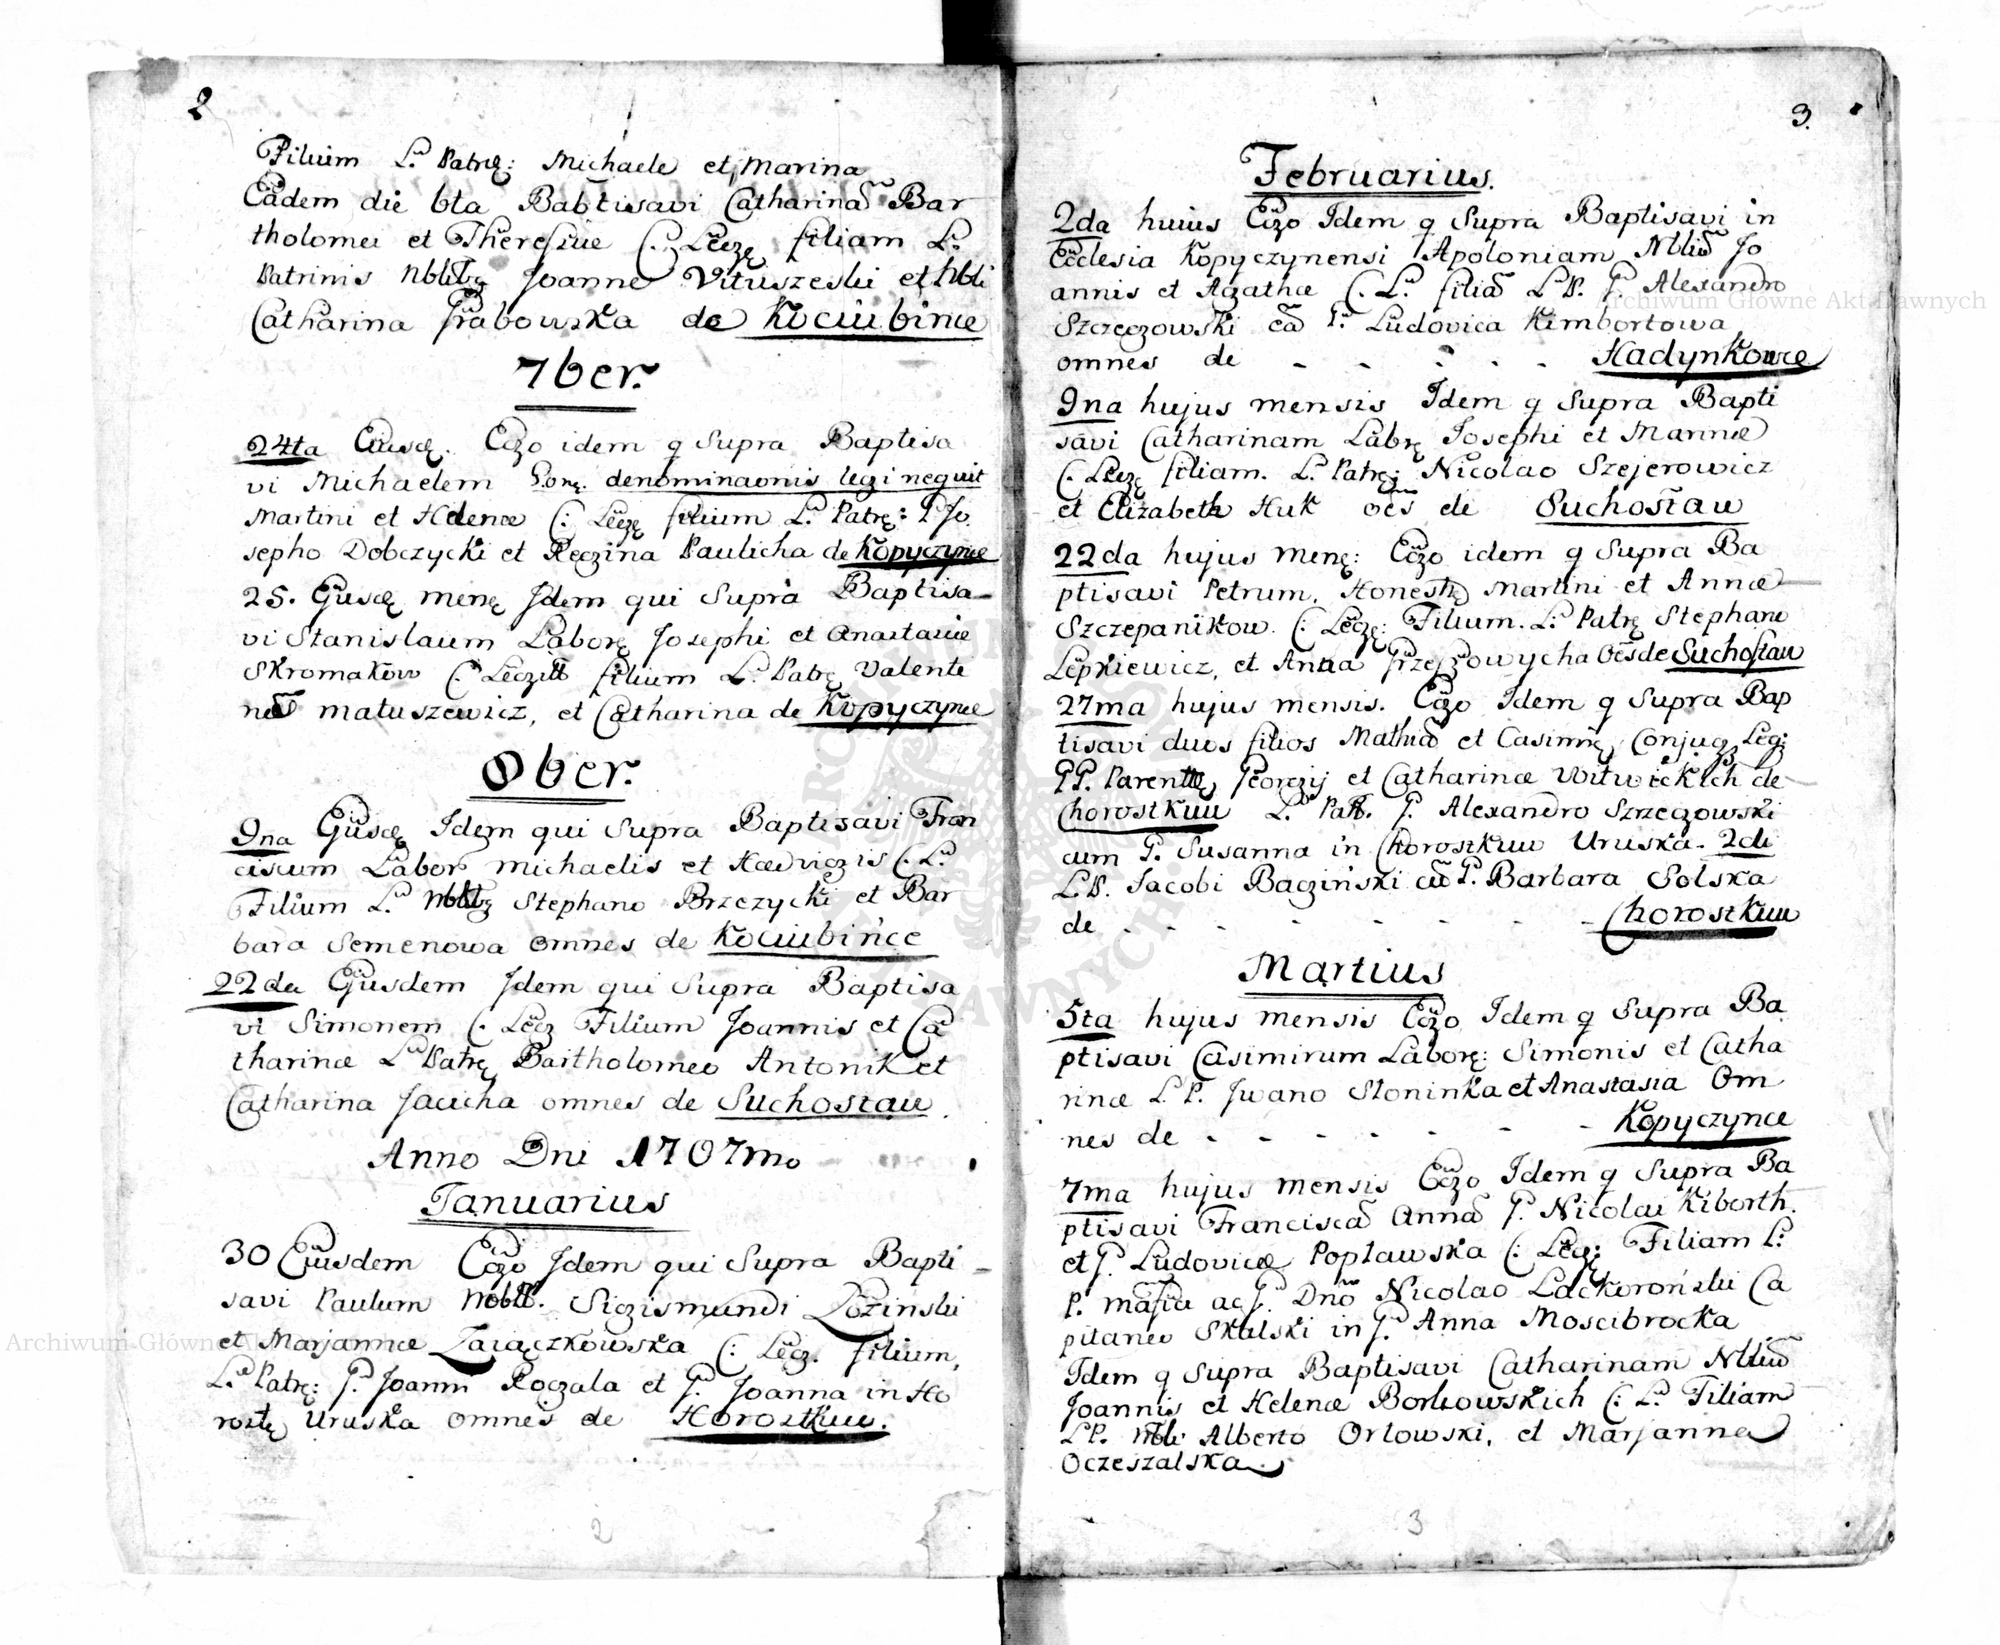 2
Filium L. Patrę: Michaele et Marina
Eadem die 6ta Babtisavi Catharinã Bar
tholomei et Theresiae C. Lĕczę filiam L.
Patrinis Nbltbg Joanne Vituszeski et Nbli
Catharina Grabowska de Kociubińce
7ber.
24ta Eiusdę. Ego idem q Supra Baptisa
vi Michaelem Porę. denominaonis legi nequit
Martini et Helenae C: Legzę filium L. Patrę: P Jo
sepho Dobczycki et Regina Paulicha de Kopyczynce
25. Ejusdę menę Idem qui Supra Baptisa-
vi Stanislaum Laborę Josephi et Anastasiae
Skromakow C: Legztt filium L. Patrę Valenti
neo Matuszewicz, et Catharina de Kopyczynce
8ber.
9na Ejusdę Idem qui Supra Baptisavi Fran
ciscum Labor Michaelis et Haedvigis C: L.
Filium L. Stephano Brzezycki et Bar
bara Semenowa omnes de Kociubińce
22da Ejusdem Idem qui Supra Baptisa
vi Simonem C: Legz Filium Joannis et Ca
tharinae L. Patrę Bartholomeo Antonik et
Catharina Jacicha omnes de Suchostaw.
Anno Dni 1707mo
Januarius
30 Eiusdem Ego Idem qui Supra Bapti-
savi Paulum Nobil. Sigismundi Lozinski
et Marjannae Zaiączkowska C: Legz. filium,
L. Patrę: G. Joanni Rogala et G. Joanna in Ho
rostę Uruska omnes de Horostkuw.
2
3.
Februarius.
2da huius Ego Idem q Supra Baptisavi in
Ecclesia Kopyczynensi Apoloniam Nbliũ Jo
annis et Agathae C. L. filiã L.P. G. Alexandro
Szczegzowski cũ G. Ludovica Kimbortowa
omnes de - - - - - Hadynkowce
9na hujus mensis Idem q Supra Bapti
savi Catharinam Labrę Josephi et Marinae
C. Legzę filiam. L. Patrę: Nicolao Szejerowicz
et Elizabetha Huk oẽs de Suchostaw
22da hujus menę: Ego idem q Supra Ba
ptisavi Petrum, Honestę Martini et Annae
Szczepanikow. C: Legzę: Filium. L: Patrę Stephano
Lepkiewicz, et Anna Grzeszowycha Oẽs de Suchostaw
27ma hujus mensis. Ego Idem q Supra Bap
tisavi duos filios Mathiã et Casimirę Conjugz Leg:
GG. Parentę Georgij et Catharinae Witwickich de
Chorostkuw L. Patt. G. Alexandro Szrzegowski
cum G. Susanna in Chorostkuw Uruska. 2di
L.P. Jacobi Bagziński cũ G. Barbara Solska
de - - - - - - - Chorostkuw
Martius
5ta hujus mensis Ego Idem q Supra Ba
ptisavi Casimirum Laborę: Simonis et Catha
rinae L. P. Jwano Sloninka et Anastasia Om
nes de - - - - - - - - Kopyczynce
7ma hujus mensis Ego Idem q Supra Ba
ptisavi Franciscã Annã G. Nicolai Kiborth.
et G. Ludovicae Poplawska C: Legę: Filiam L:
P. Magfico ac G. Dnõ Nicolao Lackoroński Ca
pitaneo Skalski in G. Anna Moscibrocka
Idem q Supra Baptisavi Catharinam Nbliũ
Joannis et Helenae Borkowskich C: L. Filiam
L P. Nbli Alberto Orlowski, et Marjanna
Oczeszalska.
3
Archiwum Główne Akt Dawnych